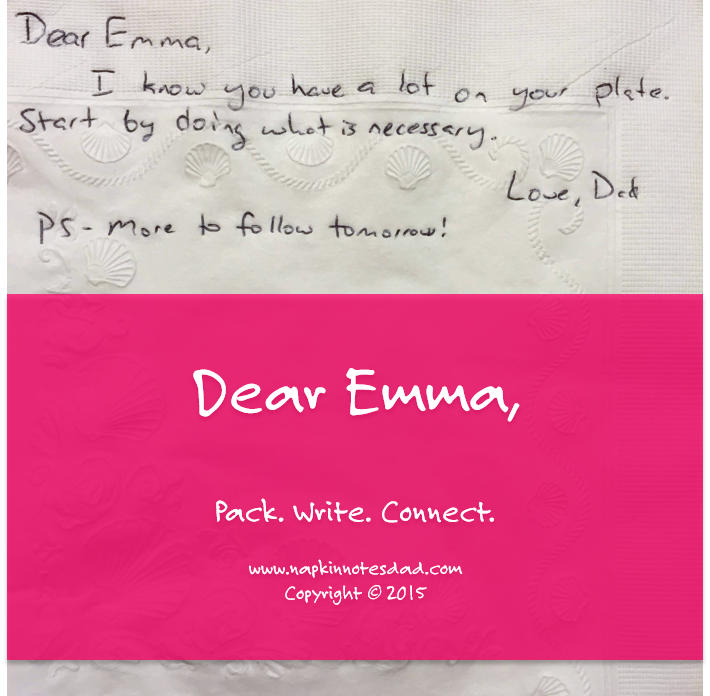 Dear Emma,
I know you have a lot on your plate.
Start by doing what is necessary.
Love, Dad
PS - More to follow tomorrow!
Dear Emma,
Pack. Write. Connect.
www.napkinnotesdad.com
Copyright © 2015